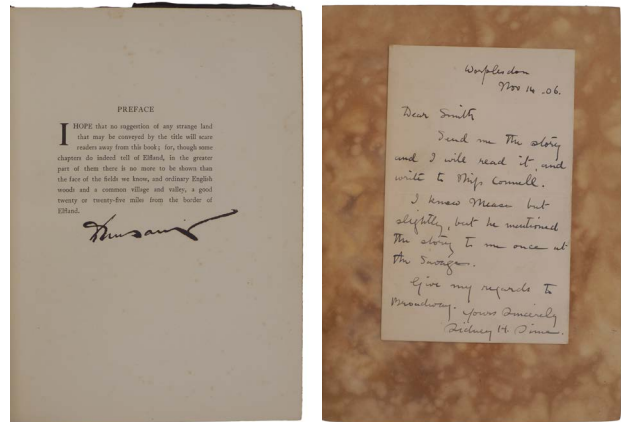 PREFACE
I HOPE that no suggestion of any strange land
that may be conveyed by the title will scare
readers away from this book; for, though some
chapters do indeed tell of Elfland, in the greater
part of them there is no more to be shown than
the face of the fields we know, and ordinary English
woods and a common village and valley, a good
twenty or twenty-five miles from the border of
Elfland.
Dunsany
Worplesdon
Nov 14 .06.
Dear Smith
Send me the story
and I will read it, and
write to Miss Connell.
I knew but
slightly, but he mentioned
the story to me once at
the Savage.
Give my regards to
Broadway. Yours Sincerely
Sidney H. Sime.